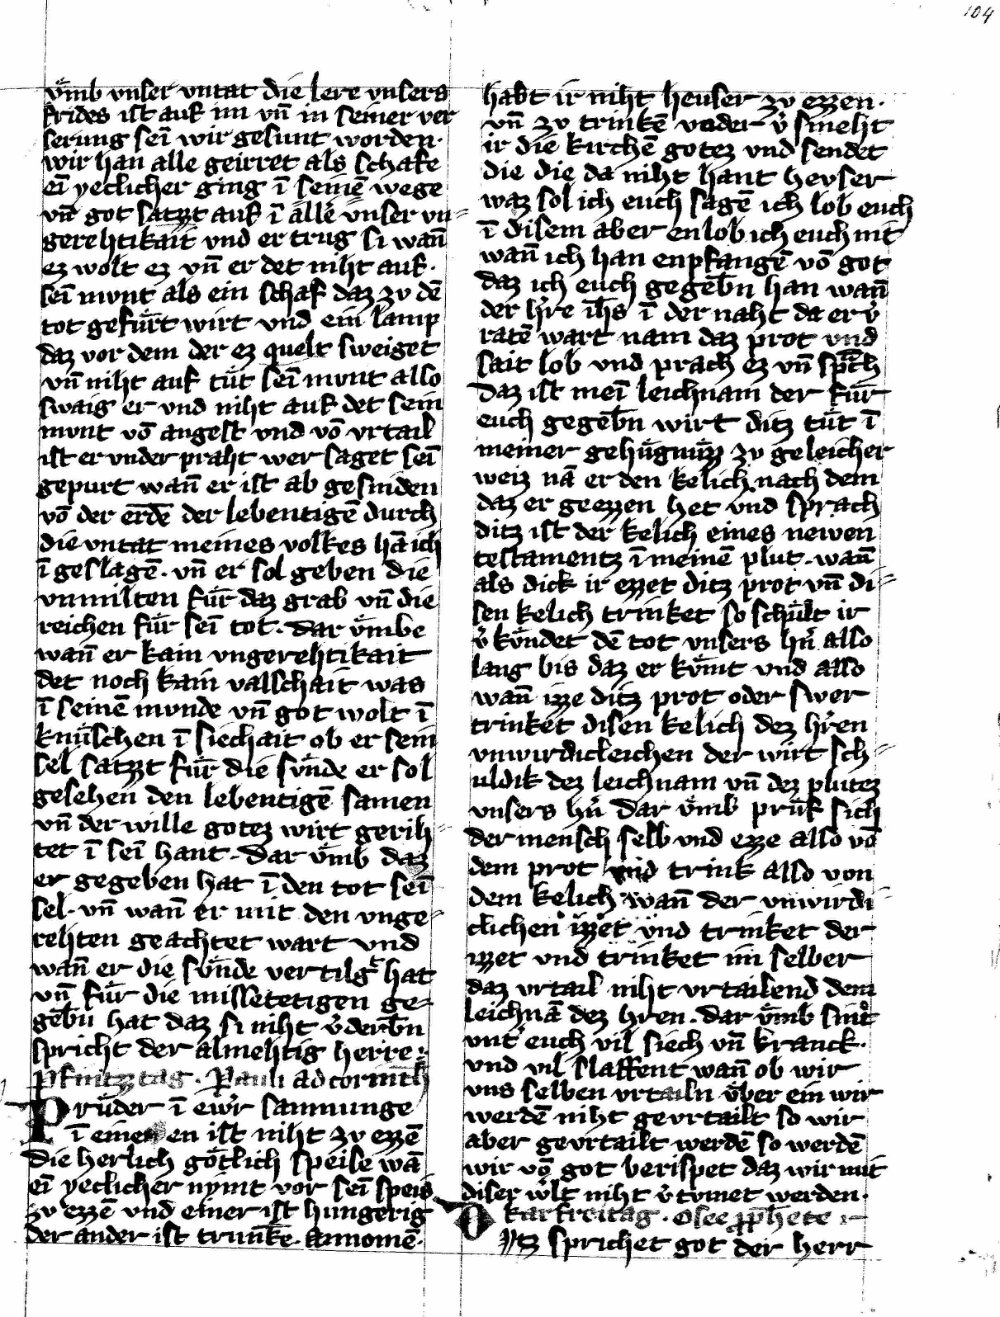 104
vͤmb vnser vntat die lere vnsers
frides ist auf im vn̄ in seiner ver
serung sei᷑ wir gesunt worden·
wir han alle geirret als schafe
ei᷑ yeclicher ging i᷑ seine᷑ wege
vn̄ got satzzt auf i᷑ alle᷑ vnser vn=
gerehtikait vnd er trug si wan̄
ez wolt ez vn̄ er det niht auf·
sei᷑ mvnt als ein schaf daz zv de᷑
tot gefuͤrt wirt vnd ein lamp
daz vor dem der ez quelt sweiget
vn̄ niht auf tuͤt sei᷑ mvnt also
swaig er vnd niht auf det sein
mvnt vo᷑ angest vnd vo᷑ vrtail
ist er vnder praht wer saget sei᷑
gepurt wan̄ er ist ab gesniden
vo᷑ der erde᷑ der lebentige᷑ durch
die vntat meines volkes ha᷑ ich
i᷑ geslage᷑· vn̄ er sol geben die
vnmilten fuͤr daz grab vn̄ die
reichen fuͤr sei᷑ tot· dar vͤmbe
wan̄ er kain vngerehtikait
det noch kain valschait was
i᷑ seine᷑ mvnde vn̄ got wolt i᷑
knuͤschen i᷑ siechait ob er sein
sel satzzt fuͤr die svͤnde er sol
gesehen den lebentige᷑ samen
vn̄ der wille gotez wirt gerih=
tet i᷑ sei᷑ hant· dar vͤmb daz
er gegeben hat i᷑ den tot sei᷑
sel· vn̄ wan̄ er mit den vnge=
rehten geachtet wart vnd
wan̄ er die svͤnde vertilgt hat
vn̄ fuͤr die missetetigen ge=
gebn̄ hat daz si niht v᷑derbn̄
spricht der almehtig herre·
Pfintztag· Pauli ad corinth᷑
Pruͤder i᷑ ew᷑r samnunge
i᷑ einen en ist niht zv ezze᷑
die herlich goͤtlich speise wa᷑
ei᷑ yeclicher nymt vor sei᷑ speis
zv ezze᷑ vnd einer ist hungerig
der ander ist trunke᷑· annome᷑·
habt ir niht heuser zv ezzen·
vn̄ zv trinke᷑ voder v᷑ smeht
ir die kirche᷑ gotez vnd sendet
die die da niht hant hevser
waz sol ich euch sage᷑ ich lob euch
i᷑ disem aber en lob ich euch nit
wan̄ ich han enpfange᷑ vo᷑ got
daz ich euch gegebn̄ han wan̄
der h᷑re ih᷑s i᷑ der naht da er v᷑
rate᷑ wart nam daz prot vnd
sait lob vnd prach ez vn̄ sp᷑ch
daz ist mei᷑ leichnam der fuͤr
euch gegebn̄ wirt ditz tuͤt i᷑
meiner gehuͤgnuͤzz zv geleicher
weiz na᷑ er den kelich nach dem
daz er geezzen het vnd sprach
ditz ist der kelich eines newen
testamentz i᷑ meine᷑ plut· wan̄
als dick ir ezzet ditz prot vn̄ di=
sen kelich trinket so schuͤlt ir
v᷑ kvͤndet de᷑ tot vnsers hn᷑ also
lang bis daz er kvͤmt vnd also
wan̄ izze ditz prot oder swer
trinket disen kelich dez h᷑ren
vnwirdicleichen der wirt sch=
uldik dez leichnam vn̄ dez plutez
vnsers hn᷑ dar vͤmb pruͤf sich
der mensch selb vnd ezze also vo᷑
dem prot vnd trink also von
dem kelich wan̄ der vnwirdi=
clichen izzet vnd trinket der
izzet vnd trinket im selber
daz vrtail niht vrtailend dem
leichna᷑ dez h᷑ren· dar vͤmb sint
vnt᷑ euch vil siech vn̄ kranck·
vnd vil slaffent wan̄ ob wir
vns selben vrtailn vͤber ein wir
werde᷑ niht gevrtailt so wir
aber gevrtailt werde᷑ so werde᷑
wir vo᷑ got berispet daz wir mit
diser w᷑lt niht v᷑tvmet werden·
karfreitag· Osee p᷑ph᷑ete
Ditz sprichet got der herr